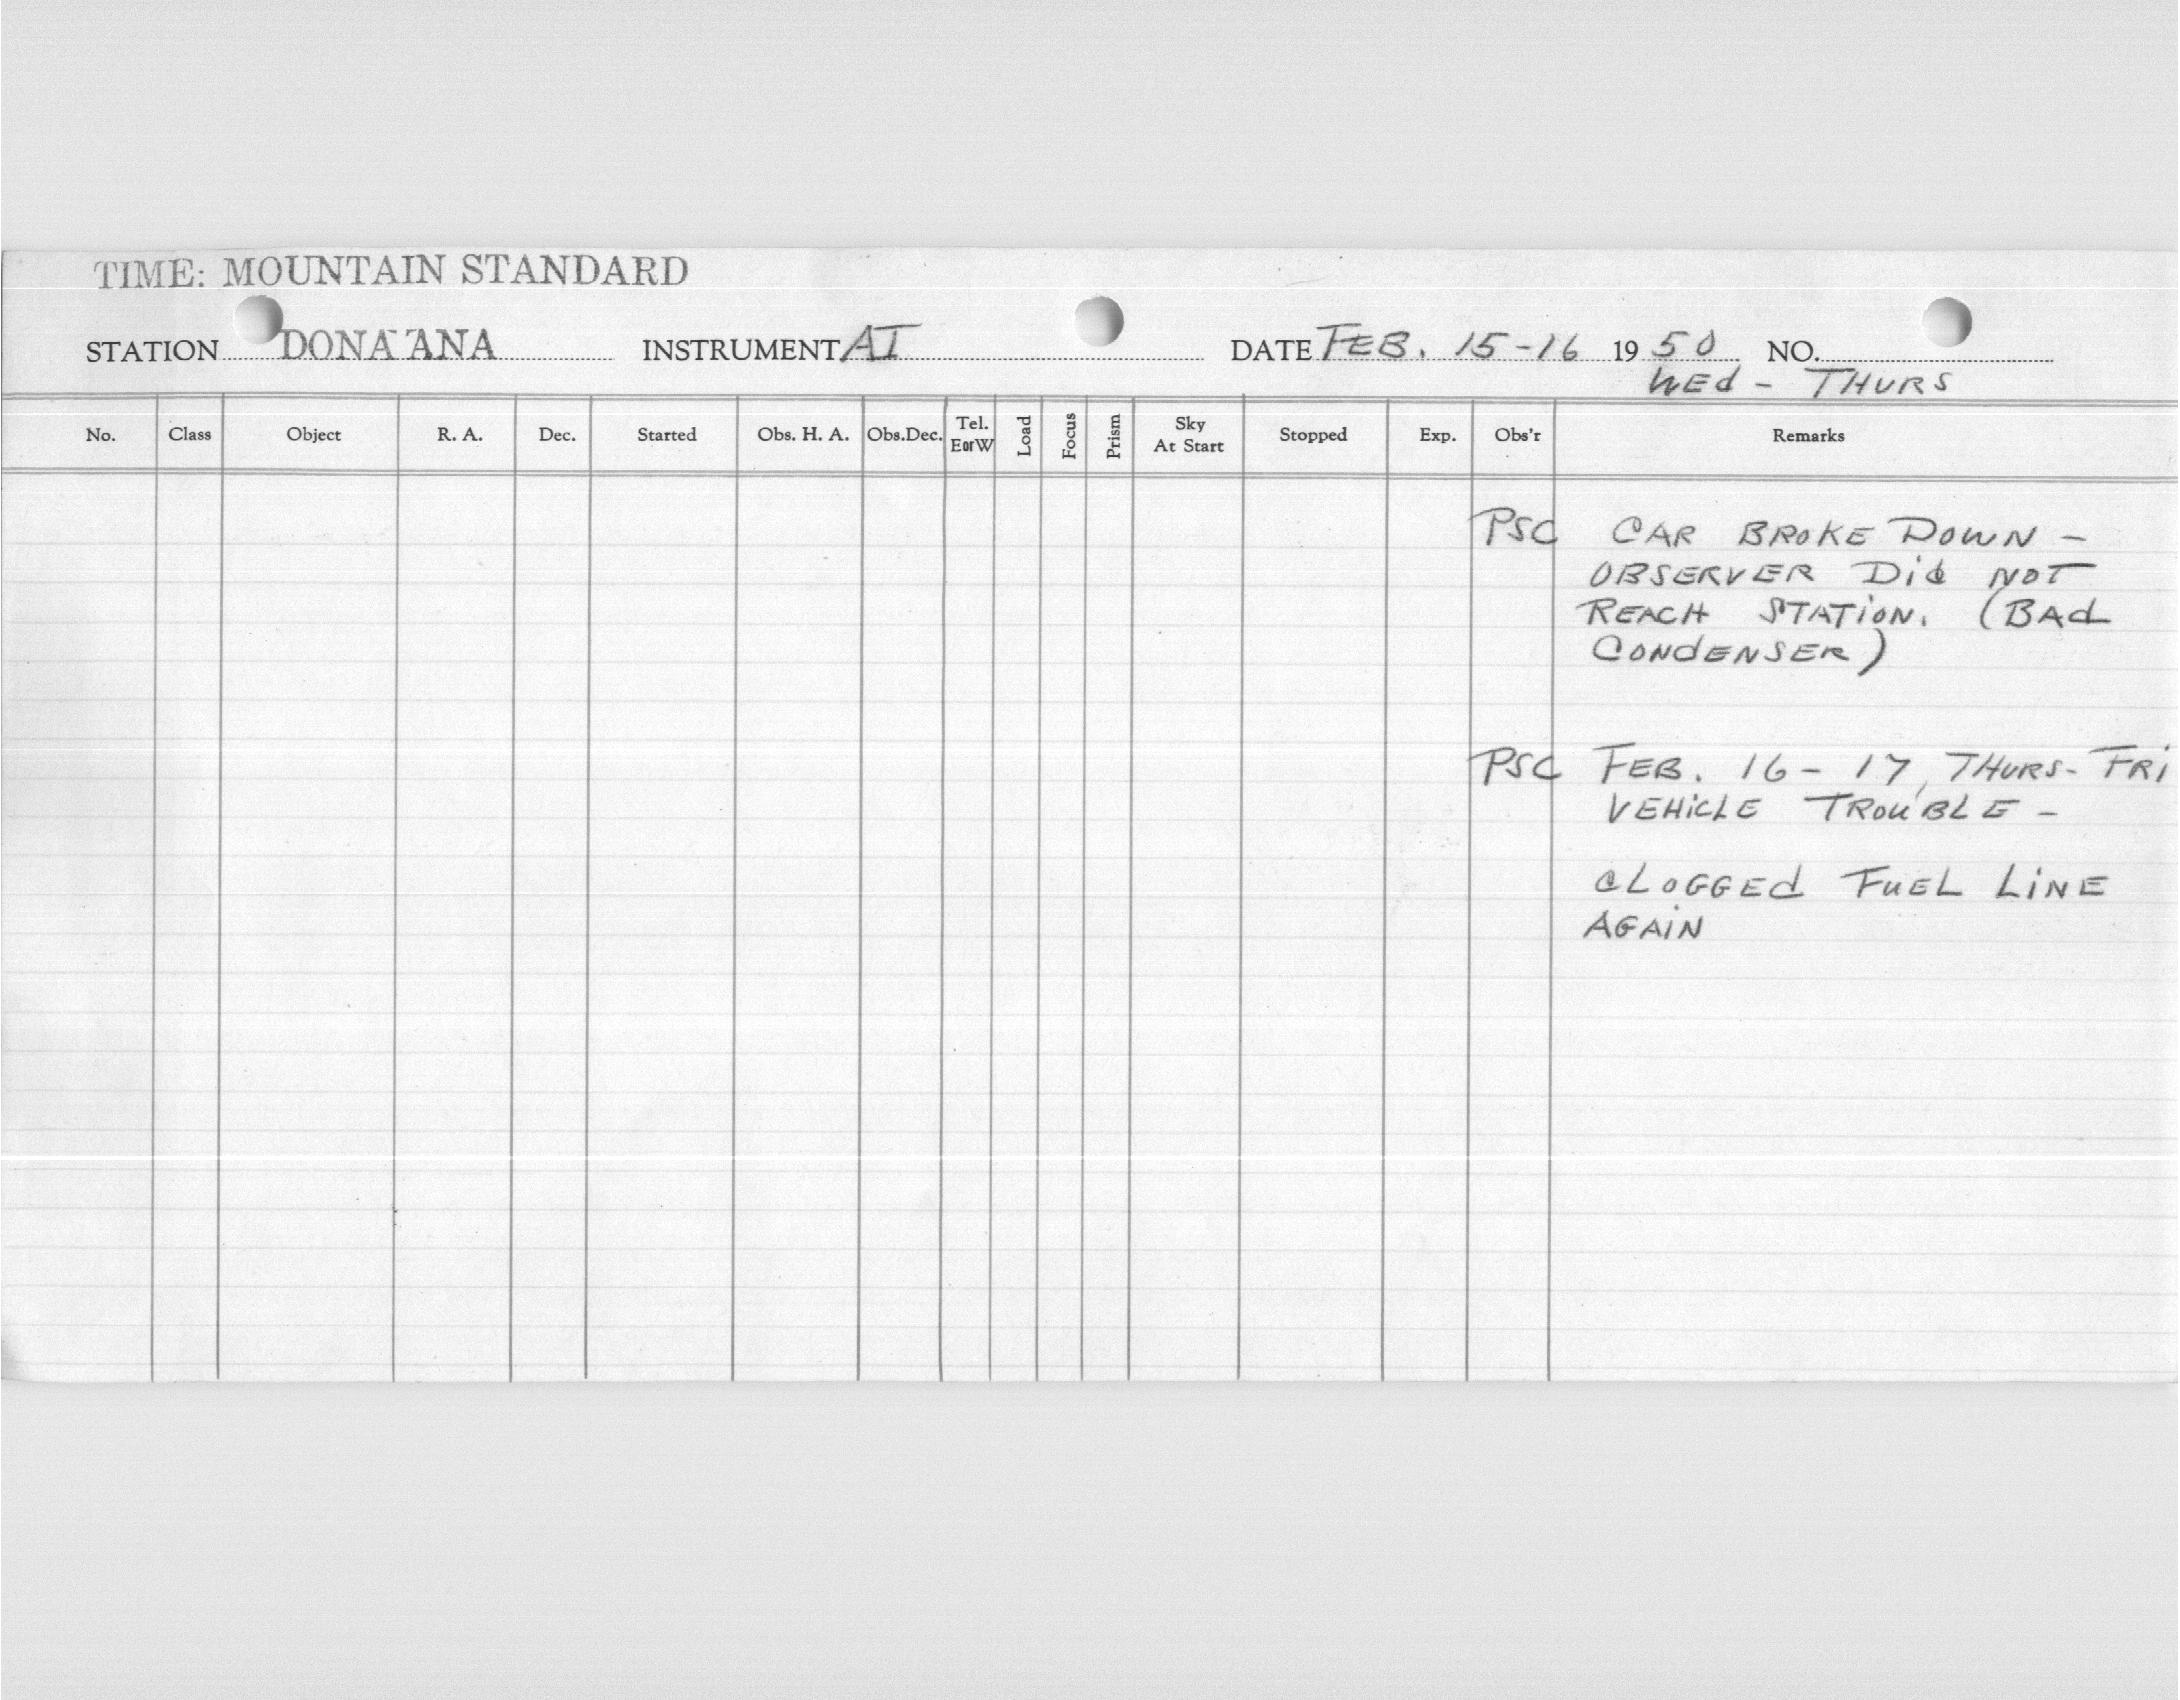 TIME: MOUNTAIN STANDARD
STATION DONA ANA INSTRUMENT AI DATE FEB. 15-16 1950 NO.
WEd - THURS
No. Class Object R. A. Dec. Started Obs. H. A. Obs.Dec. Tel. EorW Load Focus Prism Sky At Start Stopped Exp. Obs'r Remarks
PSC CAR BROKE DOWN -
OBSERVER Did NOT
REACH STATiON. (BAd
CONdENSER)
PSC FEB. 16-17, THURS-FRi
VEHiCLE TROUBLE -
CLOGGEd FUEL LiNE
AGAiN